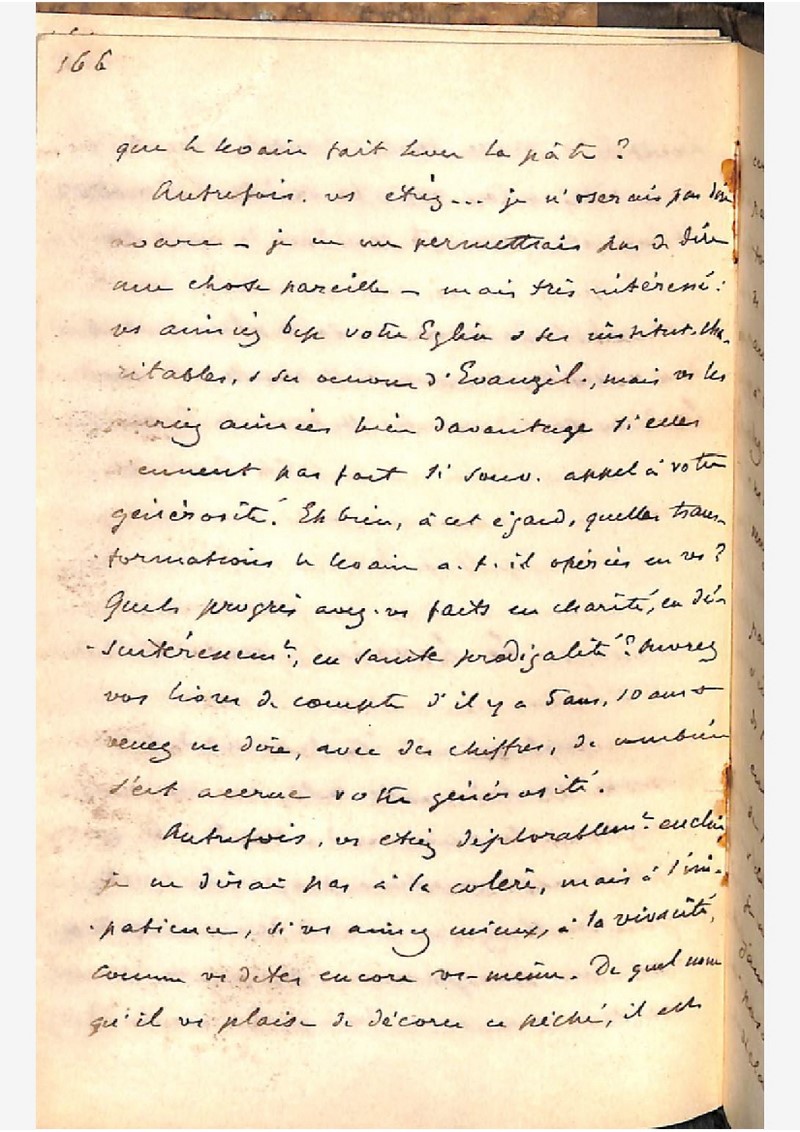 166
que le levain fait lever la pâte ?
Autrefois, vs etiez... je n'oserais pas dire
avare – je ne me permettrais pas de dire
une chose pareille – mais très intéressé :
vs aimiez bcp votre Eglise & ses institut. cha-
ritables, & ses oeuvres d'Evangél., mais vs les
auriez aimées bien davantage si elles
n'eussent pas fait si souv. appel à votre
générosité. Eh bien, à cet égard, quelles trans-
formations le levain a-t-il opérées en vs ?
Quels progrès avez-vs faits en charité, en dé-
-sintéressemt, en sainte prodigalité ? Ouvrez
vos livres de compte d'il y a 5 ans, 10 ans &
venez me dire, avec des chiffres, de combien
s'est accrue votre générosité.
Autrefois, vs etiez déplorablemt enclin,
je ne dirai pas à la colère, mais à l'im-
-patience, si vs aimez mieux, à la vivacité,
comme vs dites encore vs-même. De quel nom
qu'il vs plaise de décorer ce péché, il est